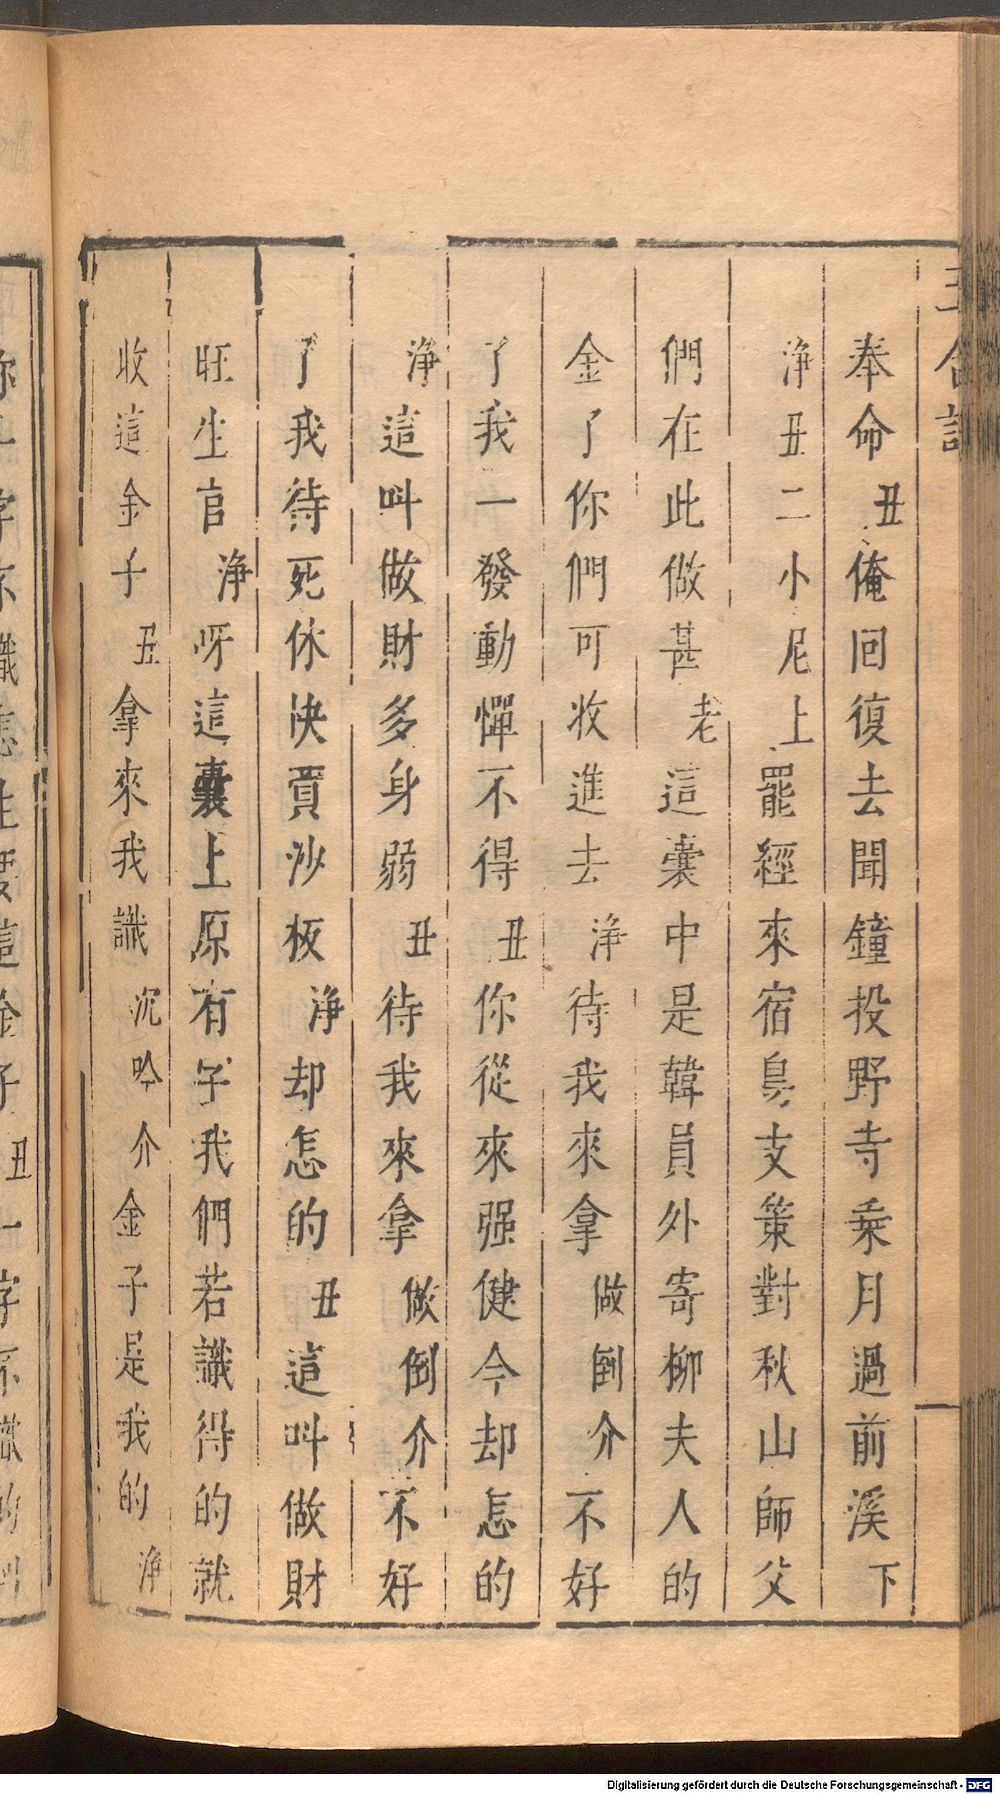 奉命丑俺回復去聞鐘投野寺乗月過前溪下
淨丑二小尼上罷經來宿鳥支策對秋山師父
們在此做甚老這囊中是韓員外寄柳夫人的
金了你們可收進去淨待我來拿做倒介不好
了我一發動憚不得丑你從來强健今却怎的
淨這叫做財多身弱丑待我來拿做倒介不好
了我待死休快買沙板淨却怎的丑這叫做財
旺生官淨呀這囊上原有字我們若識得的就
收這金子丑拿來我識沉吟介金子是我的淨
Digitalisierung gefördert durch die Deutsche Forschungsgemeinschaft - DFG